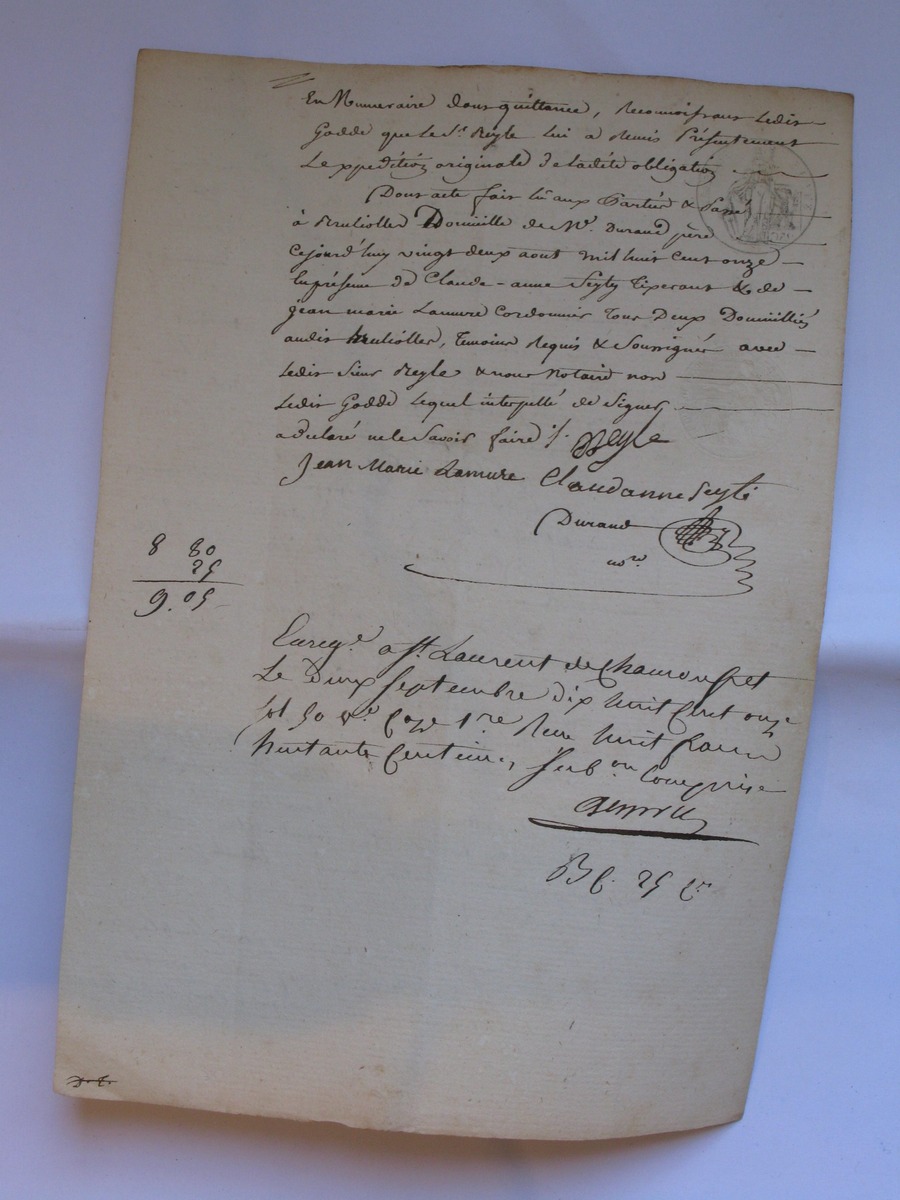 En Numeraire dont quittance, Reconoissant Ledit
Godde que Le Sr. Regle lui a Remis Présentement
L'expédition originale de ladete obligation
Dont acte fait lû aux Parties & Passé
à Domicille de Mr. Durand père
Cejourd'huy vingt deux aout mil huit cent onze
En présence de Claude-anne Seyty Tixerant & de
jean marie Lamure Cordonnier Tous Deux Domicilliés
audit Temoins Requis & Soussignés avec
Ledit Sieur Regle & nous Notaire non
Ledit Godde Lequel interpellé de Signer
a déclaré ne le Savoir faire ./. Regle
Jean Marie Lamure Claudanne Seyti
Durand
nore
8 80
25
9.05
Enregé. a St. Laurent de Chamousset
Le Deux Septembre dix huit Cent onze
fol 50 vo. Case 1re Reçu huit francs
huitante Centimes, Subon Comprise
B C. 25 Cs